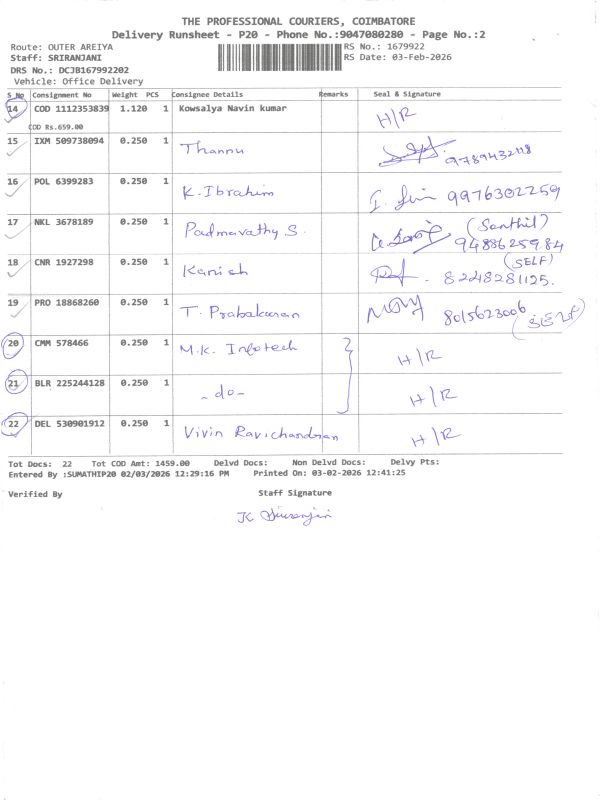 THE PROFESSIONAL COURIERS, COIMBATORE
Delivery Runsheet - P20 - Phone No.:9047080280 - Page No.:2
Route: OUTER AREIYA RS No.: 1679922
Staff: SRIRANJANI RS Date: 03-Feb-2026
DRS No.: DCJB167992202
Vehicle: Office Delivery
S_No Consignment No Weight PCS Consignee Details Remarks Seal & Signature
14 COD 1112353839 1.120 1 Kowsalya Navin kumar H/R
COD Rs.659.00
15 IXM 509738094 0.250 1 Thannu 9789432118
16 POL 6399283 0.250 1 K. Ibrahim 9976302259
17 NKL 3678189 0.250 1 Padmavathy S. (Santhil)
9488625984
18 CNR 1927298 0.250 1 Kanish (SELF)
8248281125.
19 PRO 18868260 0.250 1 T. Prabakaran 8015623006 (SELF)
20 CMM 578466 0.250 1 M.K. Infotech H/R
21 BLR 225244128 0.250 1 - do - H/R
22 DEL 530901912 0.250 1 Vivin Ravichandran H/R
Tot Docs: 22 Tot COD Amt: 1459.00 Delvd Docs: Non Delvd Docs: Delvy Pts:
Entered By :SUMATHIP20 02/03/2026 12:29:16 PM Printed On: 03-02-2026 12:41:25
Verified By Staff Signature